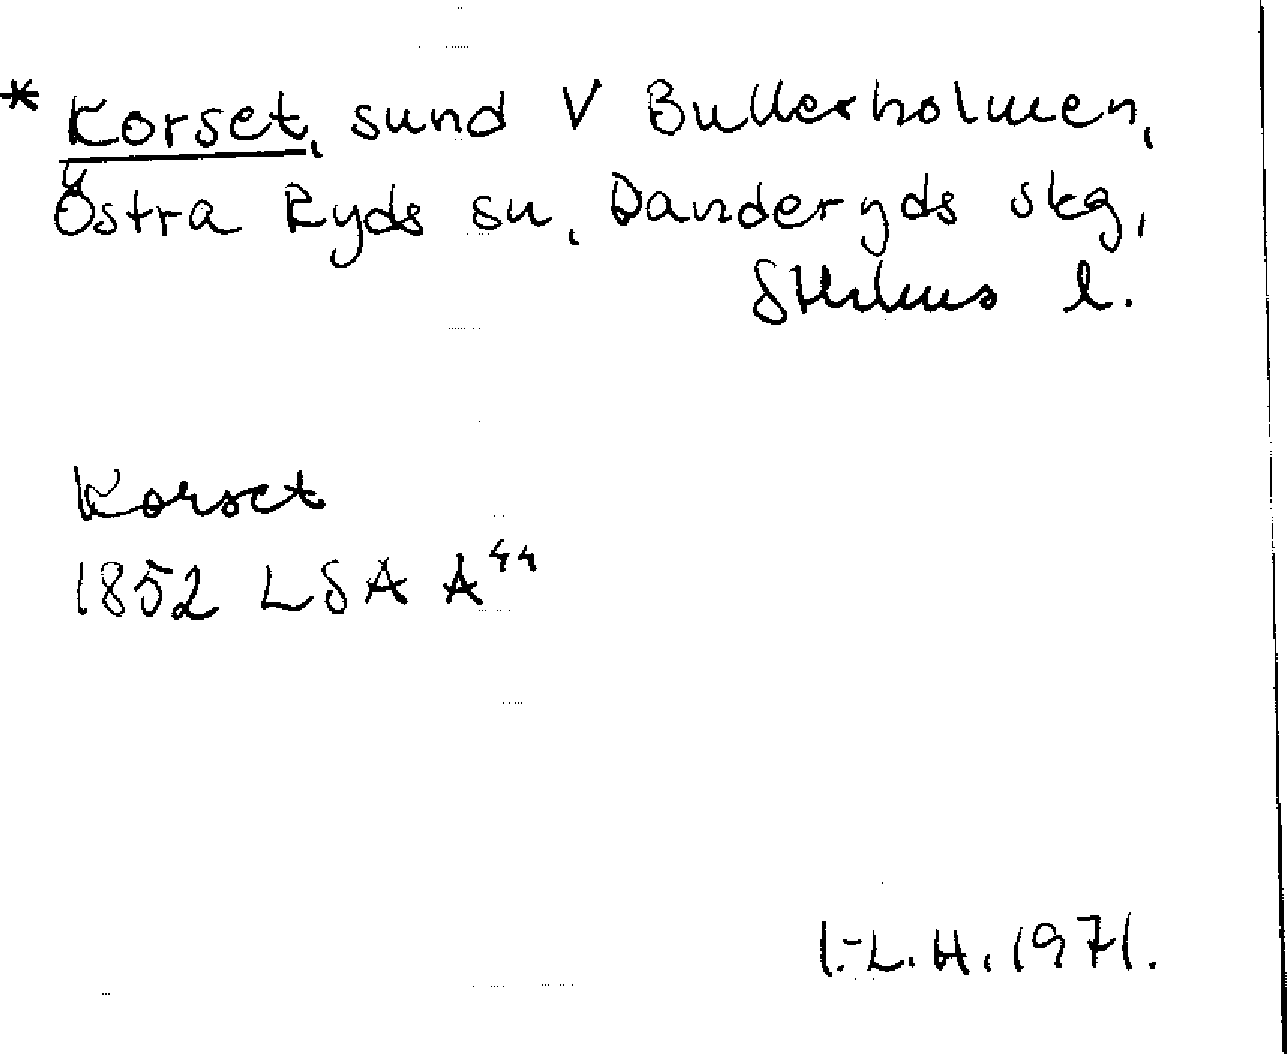 * Korset, sund V Bullerholmen,
Östra Ryds sn, Danderyds skg,
Sthlms l.
Korset
1852 LSA A⁴⁴
I.-L.H. 1971.